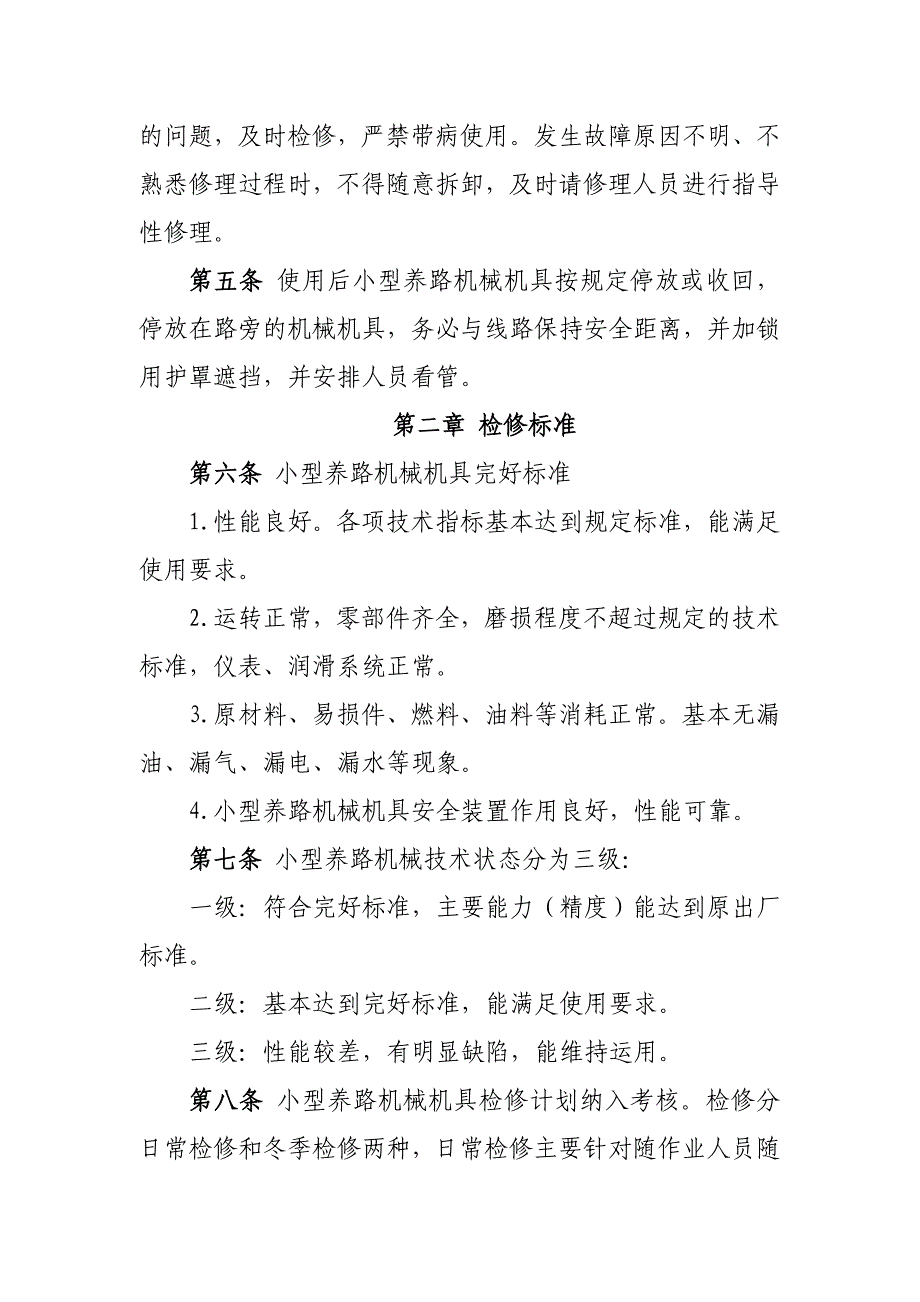 的问题，及时检修，严禁带病使用。发生故障原因不明、不
熟悉修理过程时，不得随意拆卸，及时请修理人员进行指导
性修理。
第五条 使用后小型养路机械机具按规定停放或收回，
停放在路旁的机械机具，务必与线路保持安全距离，并加锁
用护罩遮挡，并安排人员看管。
第二章 检修标准
第六条 小型养路机械机具完好标准
1.性能良好。各项技术指标基本达到规定标准，能满足
使用要求。
2.运转正常，零部件齐全，磨损程度不超过规定的技术
标准，仪表、润滑系统正常。
3.原材料、易损件、燃料、油料等消耗正常。基本无漏
油、漏气、漏电、漏水等现象。
4.小型养路机械机具安全装置作用良好，性能可靠。
第七条 小型养路机械技术状态分为三级：
一级：符合完好标准，主要能力（精度）能达到原出厂
标准。
二级：基本达到完好标准，能满足使用要求。
三级：性能较差，有明显缺陷，能维持运用。
第八条 小型养路机械机具检修计划纳入考核。检修分
日常检修和冬季检修两种，日常检修主要针对随作业人员随